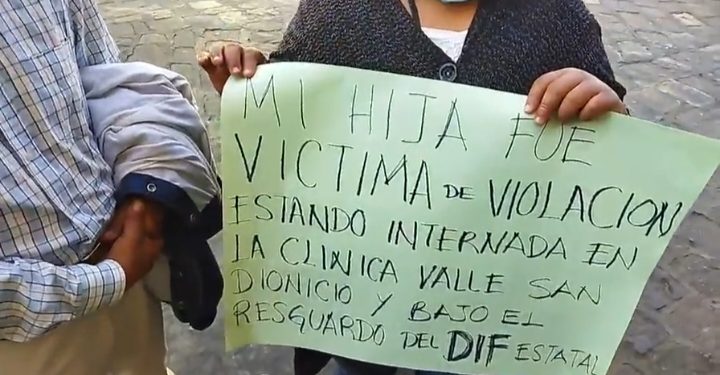 MI HIJA FUE
VICTIMA DE VIOLACION
ESTANDO INTERNADA EN
LA CLINICA VALLE SAN
DIONICIO Y BAJO EL
RESGUARDO DEL DIF ESTATAL